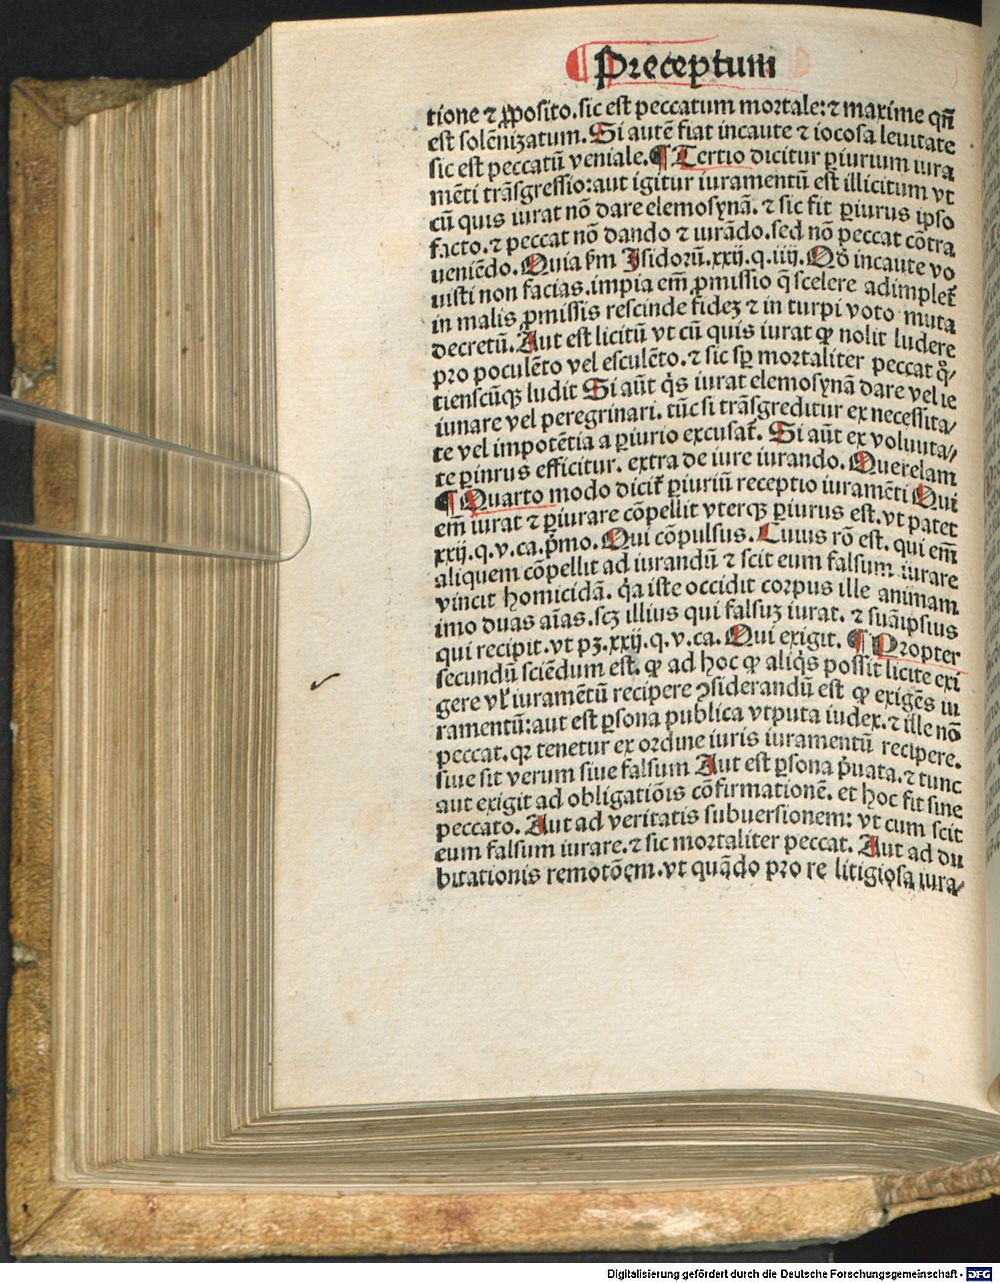 Preceptum
tione ⁊ ꝓposito. sic est peccatum mortale: ⁊ maxime qñ
est solēnizatum. Si autē fiat incaute ⁊ iocosa leuitate
sic est peccatū veniale. ¶ Tertio dicitur ꝑiurium iura
mēti trāsgressio: aut igitur iuramentū est illicitum vt
cū quis iurat nō dare elemosynā. ⁊ sic fit ꝑiurus ipso
facto. ⁊ peccat nō dando ⁊ iurādo. sed nō peccat cōtra
ueniēdo. Quia ẜm Isidorū. xxij. q. iiij. Qđ incaute vo
uisti non facias. impia em̄ ꝓmissio q̄ scelere adimplet̄
in malis ꝓmissis rescinde fideꝫ ⁊ in turpi voto muta
decretū. Aut est licitū vt cū quis iurat ꝙ nolit ludere
pro poculēto vel esculēto. ⁊ sic sꝑ mortaliter peccat qͦ/
tienscūqꝫ ludit Si aūt qͥs iurat elemosynā dare vel ie
iunare vel peregrinari. tūc si trāsgreditur ex necessita/
te vel impotētia a ꝑiurio excusat̄. Si aūt ex volunta/
te ꝑinrus efficitur. extra de iure iurando. Querelam
¶ Quarto modo dicit̄ ꝑiuriū receptio iuramēti Qui
em̄ iurat ⁊ ꝑiurare cōpellit vterqꝫ ꝑiurus est. vt patet
xxij. q. v. ca. pͥmo. Qui cōpulsus. Cuius rō est. qui em̄
aliquem cōpellit ad iurandū ⁊ scit eum falsum iurare
vincit homicidā. qͥa iste occidit corpus ille animam
imo duas aīas. scꝫ illius qui falsuꝫ iurat. ⁊ suāipsius
qui recipit. vt pꝫ. xxij. q. v. ca. Qui exigit. ¶ Propter
secundū sciēdum est. ꝙ ad hoc ꝙ aliqͥs possit licite exi
gere vl̓ iuramētū recipere ↄsiderandū est ꝙ exigēs iu
ramentū: aut est ꝑsona publica vtputa iudex. ⁊ ille nō
peccat. qꝛ tenetur ex ordine iuris iuramentū recipere.
siue sit verum siue falsum Aut est ꝑsona pͥuata. ⁊ tunc
aut exigit ad obligatiōis cōfirmationē. et hoc fit sine
peccato. Aut ad veritatis subuersionem: vt cum scit
eum falsum iurare. ⁊ sic mortaliter peccat. Aut ad du
bitationis remotōem. vt quādo pro re litigiosa iura/
Digitalisierung gefördert durch die Deutsche Forschungsgemeinschaft - DFG